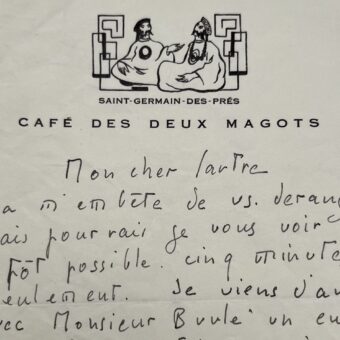 SAINT-GERMAIN-DES-PRÉS
CAFÉ DES DEUX MAGOTS
Mon cher Sartre
a m'embête de vs. derang
ais pourrais je vous voir
tôt possible. cinq minute
eulement. Je viens d'av
vec Monsieur un eu